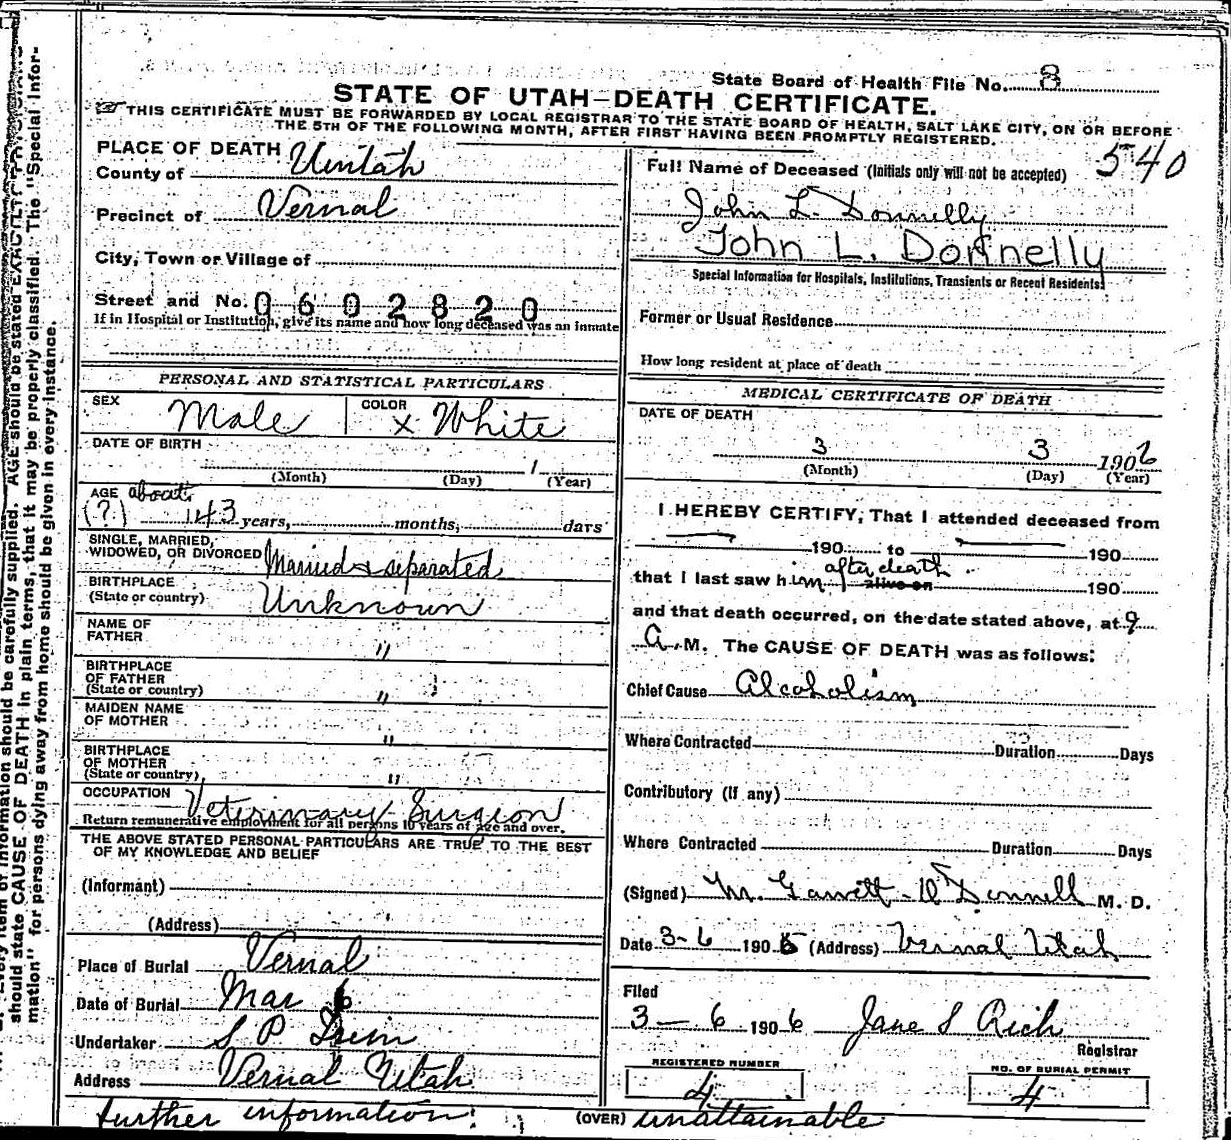 State Board of Health File No. 8
STATE OF UTAH—DEATH CERTIFICATE.
THIS CERTIFICATE MUST BE FORWARDED BY LOCAL REGISTRAR TO THE STATE BOARD OF HEALTH, SALT LAKE CITY, ON OR BEFORE
THE 5TH OF THE FOLLOWING MONTH, AFTER FIRST HAVING BEEN PROMPTLY REGISTERED.
540
PLACE OF DEATH
County of Uintah
Precinct of Vernal
City, Town or Village of
Street and No. 0602820
If in Hospital or Institution, give its name and how long deceased was an inmate
PERSONAL AND STATISTICAL PARTICULARS
SEX Male COLOR x White
DATE OF BIRTH
1
(Month) (Day) (Year)
AGE about
(?) 43 years, months, days
SINGLE, MARRIED,
WIDOWED, OR DIVORCED Married & separated
BIRTHPLACE
(State or country) Unknown
NAME OF
FATHER "
BIRTHPLACE
OF FATHER
(State or country) "
MAIDEN NAME
OF MOTHER "
BIRTHPLACE
OF MOTHER
(State or country) "
OCCUPATION Veterinary Surgeon
Return remunerative employment for all persons 10 years of age and over.
THE ABOVE STATED PERSONAL PARTICULARS ARE TRUE TO THE BEST
OF MY KNOWLEDGE AND BELIEF
(Informant)
(Address)
Place of Burial Vernal
Date of Burial Mar 6
Undertaker S P
Address Vernal Utah
Full Name of Deceased (Initials only will not be accepted)
John L. Donnelly
John L. Donnelly
Special Information for Hospitals, Institutions, Transients or Recent Residents:
Former or Usual Residence
How long resident at place of death
MEDICAL CERTIFICATE OF DEATH
DATE OF DEATH
3 3 1906
(Month) (Day) (Year)
I HEREBY CERTIFY, That I attended deceased from
190 to 190
after death
that I last saw him alive on 190
and that death occurred, on the date stated above, at 9
A.M. The CAUSE OF DEATH was as follows:
Chief Cause Alcoholism
Where Contracted Duration Days
Contributory (If any)
Where Contracted Duration Days
(Signed) M. Garrett-O'Donnell M. D.
Date 3-6 190 (Address) Vernal Utah
Filed
3 — 6 1906 Jane S Rich
Registrar
REGISTERED NUMBER
4
NO. OF BURIAL PERMIT
4
further information (OVER) unattainable
should be carefully supplied. AGE should be stated EXACTLY.
should state CAUSE OF DEATH in plain terms, that it may be properly classified. The "Special Infor-
mation" for persons dying away from home should be given in every instance.